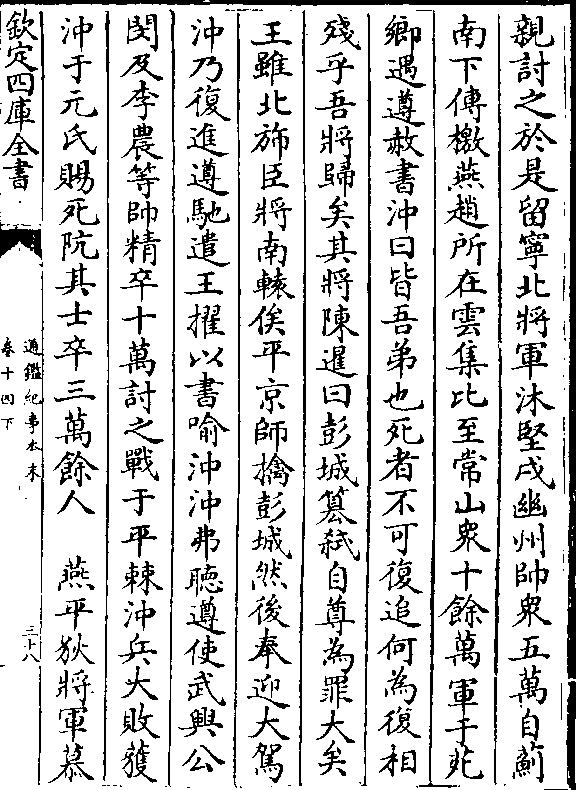 親討之於是留寧北將軍沐堅戍幽州帥衆五萬自薊
南下傳檄燕趙所在雲集比至常山衆十餘萬軍于苑
鄉遇遵赦書沖曰皆吾弟也死者不可復追何為復相
殘乎吾將歸矣其將陳暹曰彭城簒弑自尊為罪大矣
王雖北斾臣將南轅俟平京師擒彭城然後奉迎大駕
沖乃復進遵馳遣王擢以書喻沖沖弗聽遵使武興公
閔及李農等帥精卒十萬討之戰于平棘沖兵大敗獲
沖于元氏賜死阬其士卒三萬餘人 燕平狄將軍慕
欽定四庫全書
通鑑紀事本末
卷十四下
三十八